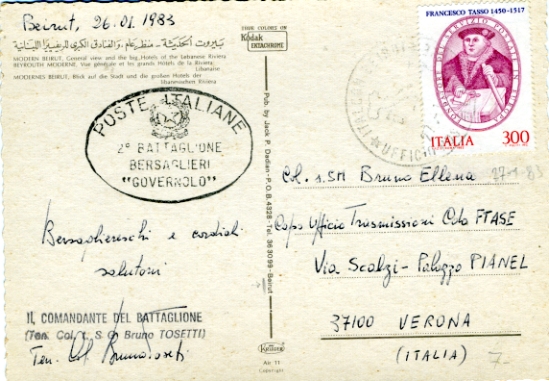 Beirut, 26.01.1983
THESE COLORS ON
Kodak
EKTACHROME
MODERN BEIRUT, General view and the big Hotels of the Lebanese Riviera
BEYROUTH MODERNE, Vue générale et les grands Hotels de la Riviera
Libanaise
MODERNES BEIRUT, Blick auf die Stadt und die großen Hotels der
libanesischen Riviera
POSTE ITALIANE
2° BATTAGLIONE
BERSAGLIERI
"GOVERNOLO"
Bersagliereschi e cordiali
saluti
IL COMANDANTE DEL BATTAGLIONE
(Ten. Col. t. S.G. Bruno TOSETTI)
Ten. Col. Bruno Tosetti
Pub. by Jack P. Dadian - P.O.B. 4328 - Tel. 363099 - Beirut
Air 11
Copyright
FRANCESCO TASSO 1450-1517
ITALIA 300
27-1-83
Col. s.SM Bruno Ellena
Capo Ufficio Trasmissioni Cdo FTASE
Via Scalzi - Palazzo PIANEL
37100 VERONA
(ITALIA)
7